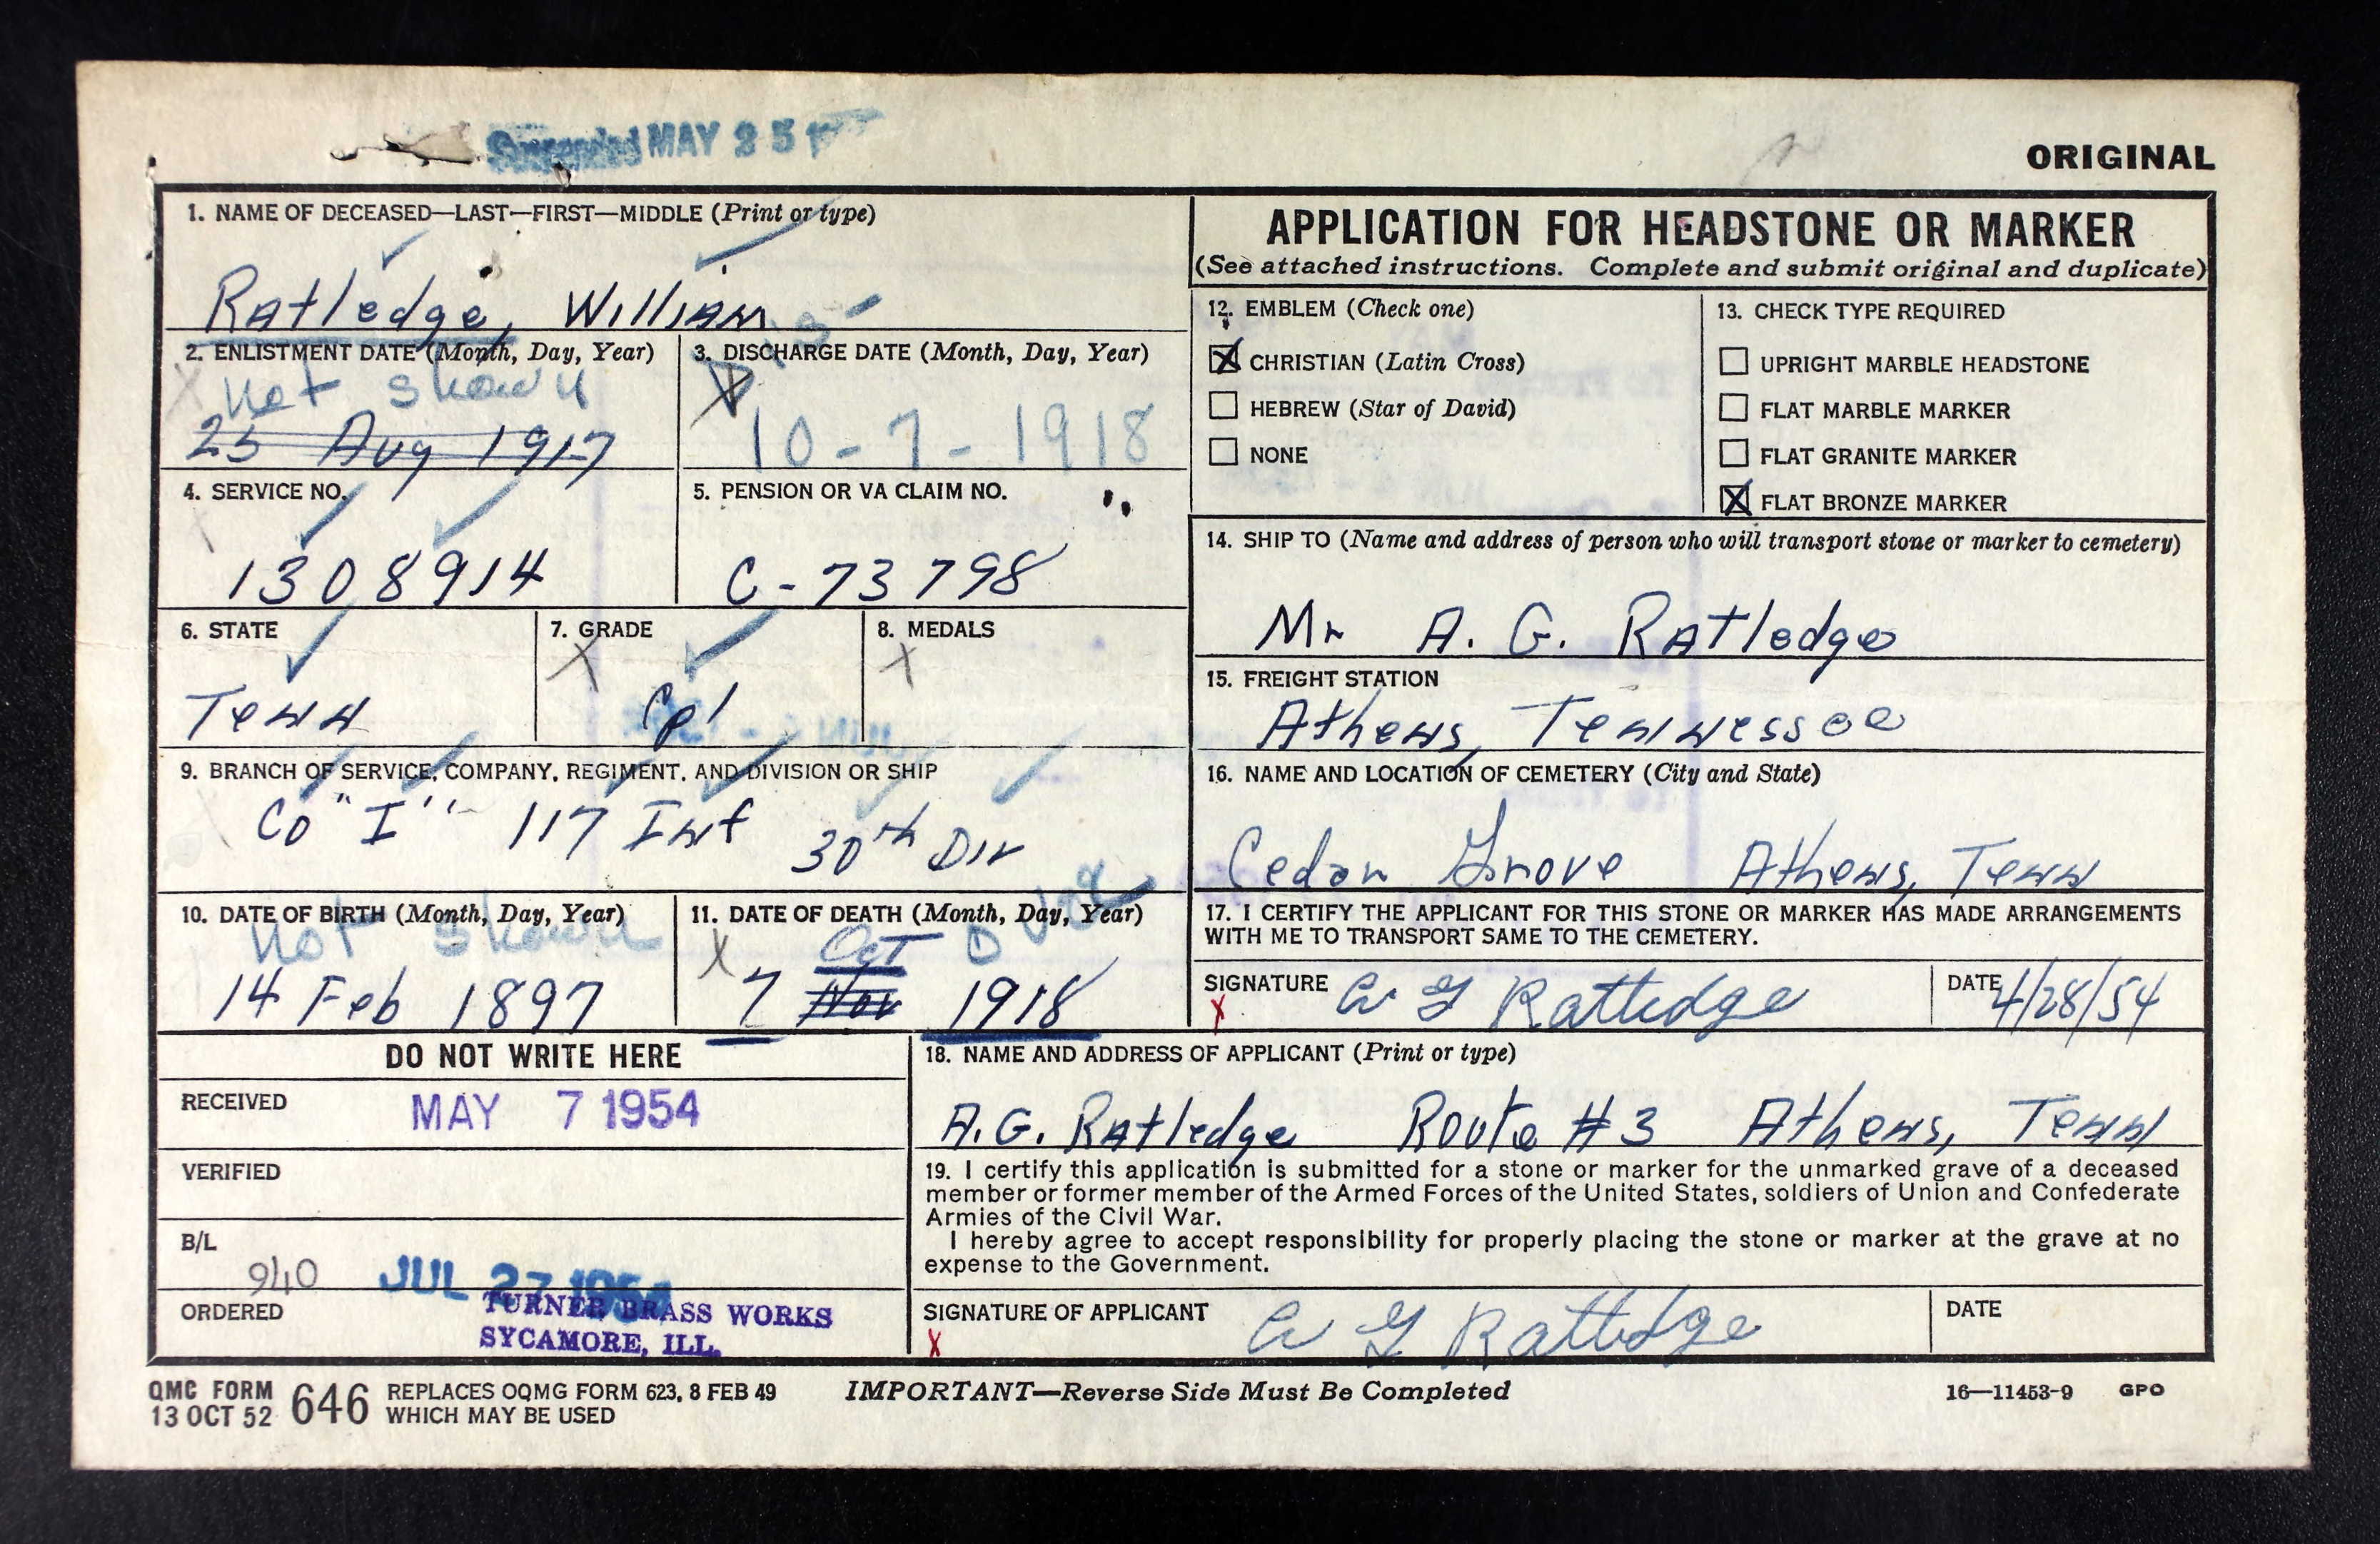 Suspended MAY 25
ORIGINAL
1. NAME OF DECEASED—LAST—FIRST—MIDDLE (Print or type)
Ratledge, William
2. ENLISTMENT DATE (Month, Day, Year)
Not Shown
25 Aug 1917
3. DISCHARGE DATE (Month, Day, Year)
10-7-1918
4. SERVICE NO.
1308914
5. PENSION OR VA CLAIM NO.
C-73798
6. STATE
Tenn
7. GRADE
Cpl
8. MEDALS
X
9. BRANCH OF SERVICE, COMPANY, REGIMENT, AND DIVISION OR SHIP
Co "I" 117 Inf 30th Div
10. DATE OF BIRTH (Month, Day, Year)
Not Shown
14 Feb 1897
11. DATE OF DEATH (Month, Day, Year)
Oct
7 Nov 1918
APPLICATION FOR HEADSTONE OR MARKER
(See attached instructions. Complete and submit original and duplicate)
12. EMBLEM (Check one)
CHRISTIAN (Latin Cross)
HEBREW (Star of David)
NONE
13. CHECK TYPE REQUIRED
UPRIGHT MARBLE HEADSTONE
FLAT MARBLE MARKER
FLAT GRANITE MARKER
FLAT BRONZE MARKER
14. SHIP TO (Name and address of person who will transport stone or marker to cemetery)
Mr A. G. Ratledge
15. FREIGHT STATION
Athens, Tennessee
16. NAME AND LOCATION OF CEMETERY (City and State)
Cedar Grove Athens, Tenn
17. I CERTIFY THE APPLICANT FOR THIS STONE OR MARKER HAS MADE ARRANGEMENTS
WITH ME TO TRANSPORT SAME TO THE CEMETERY.
SIGNATURE A G Ratledge
X
DATE 4/28/54
DO NOT WRITE HERE
RECEIVED MAY 7 1954
VERIFIED
B/L
940 JUL 27 1954
ORDERED
TURNER BRASS WORKS
SYCAMORE, ILL.
18. NAME AND ADDRESS OF APPLICANT (Print or type)
A.G. Ratledge Route #3 Athens, Tenn
19. I certify this application is submitted for a stone or marker for the unmarked grave of a deceased
member or former member of the Armed Forces of the United States, soldiers of Union and Confederate
Armies of the Civil War.
I hereby agree to accept responsibility for properly placing the stone or marker at the grave at no
expense to the Government.
SIGNATURE OF APPLICANT A G Ratledge
X
DATE
QMC FORM 646
13 OCT 52
REPLACES OQMG FORM 623, 8 FEB 49
WHICH MAY BE USED
IMPORTANT—Reverse Side Must Be Completed
16—11453-9 GPO